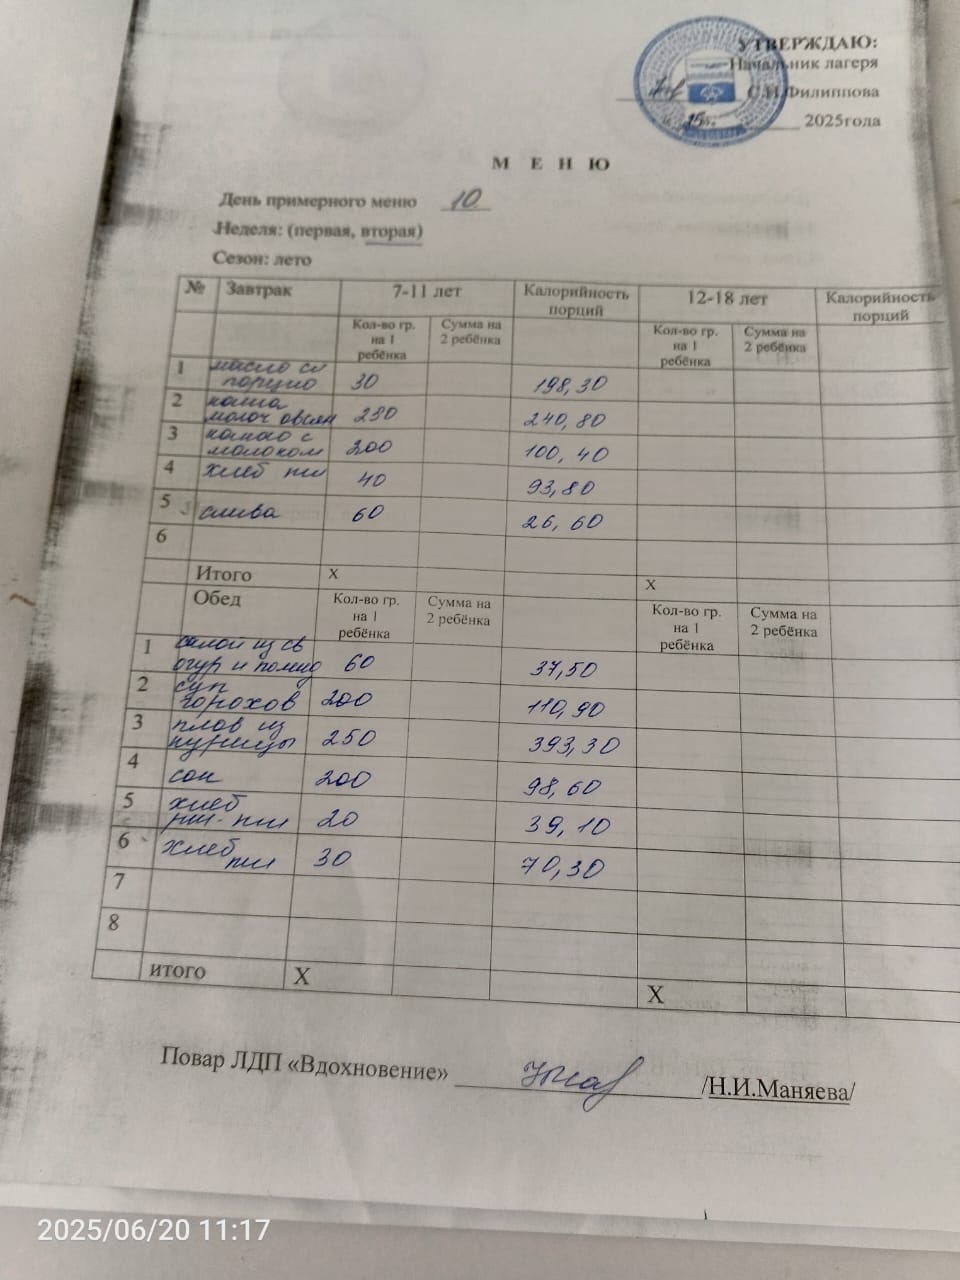 УТВЕРЖДАЮ:
Начальник лагеря
С.И.Филиппова
2025года
М Е Н Ю
День примерного меню 10
Неделя: (первая, вторая)
Сезон: лето
№ Завтрак 7-11 лет Калорийность порций 12-18 лет Калорийность порций
Кол-во гр. на 1 ребёнка Сумма на 2 ребёнка Кол-во гр. на 1 ребёнка Сумма на 2 ребёнка
1 масло сл порцио 30 198,30
2 каша молоч овсян 250 240,80
3 какао с молоком 200 100,40
4 хлеб пш 40 93,80
5 слива 60 26,60
6
Итого х х
Обед Кол-во гр. на 1 ребёнка Сумма на 2 ребёнка Кол-во гр. на 1 ребёнка Сумма на 2 ребёнка
1 салат из св огур и помид 60 37,50
2 суп горохов 200 110,90
3 плов из курицы 250 393,30
4 сок 200 98,60
5 хлеб рж-пш 20 39,10
6 хлеб пш 30 70,30
7
8
итого Х Х
Повар ЛДП «Вдохновение» /Н.И.Маняева/
2025/06/20 11:17